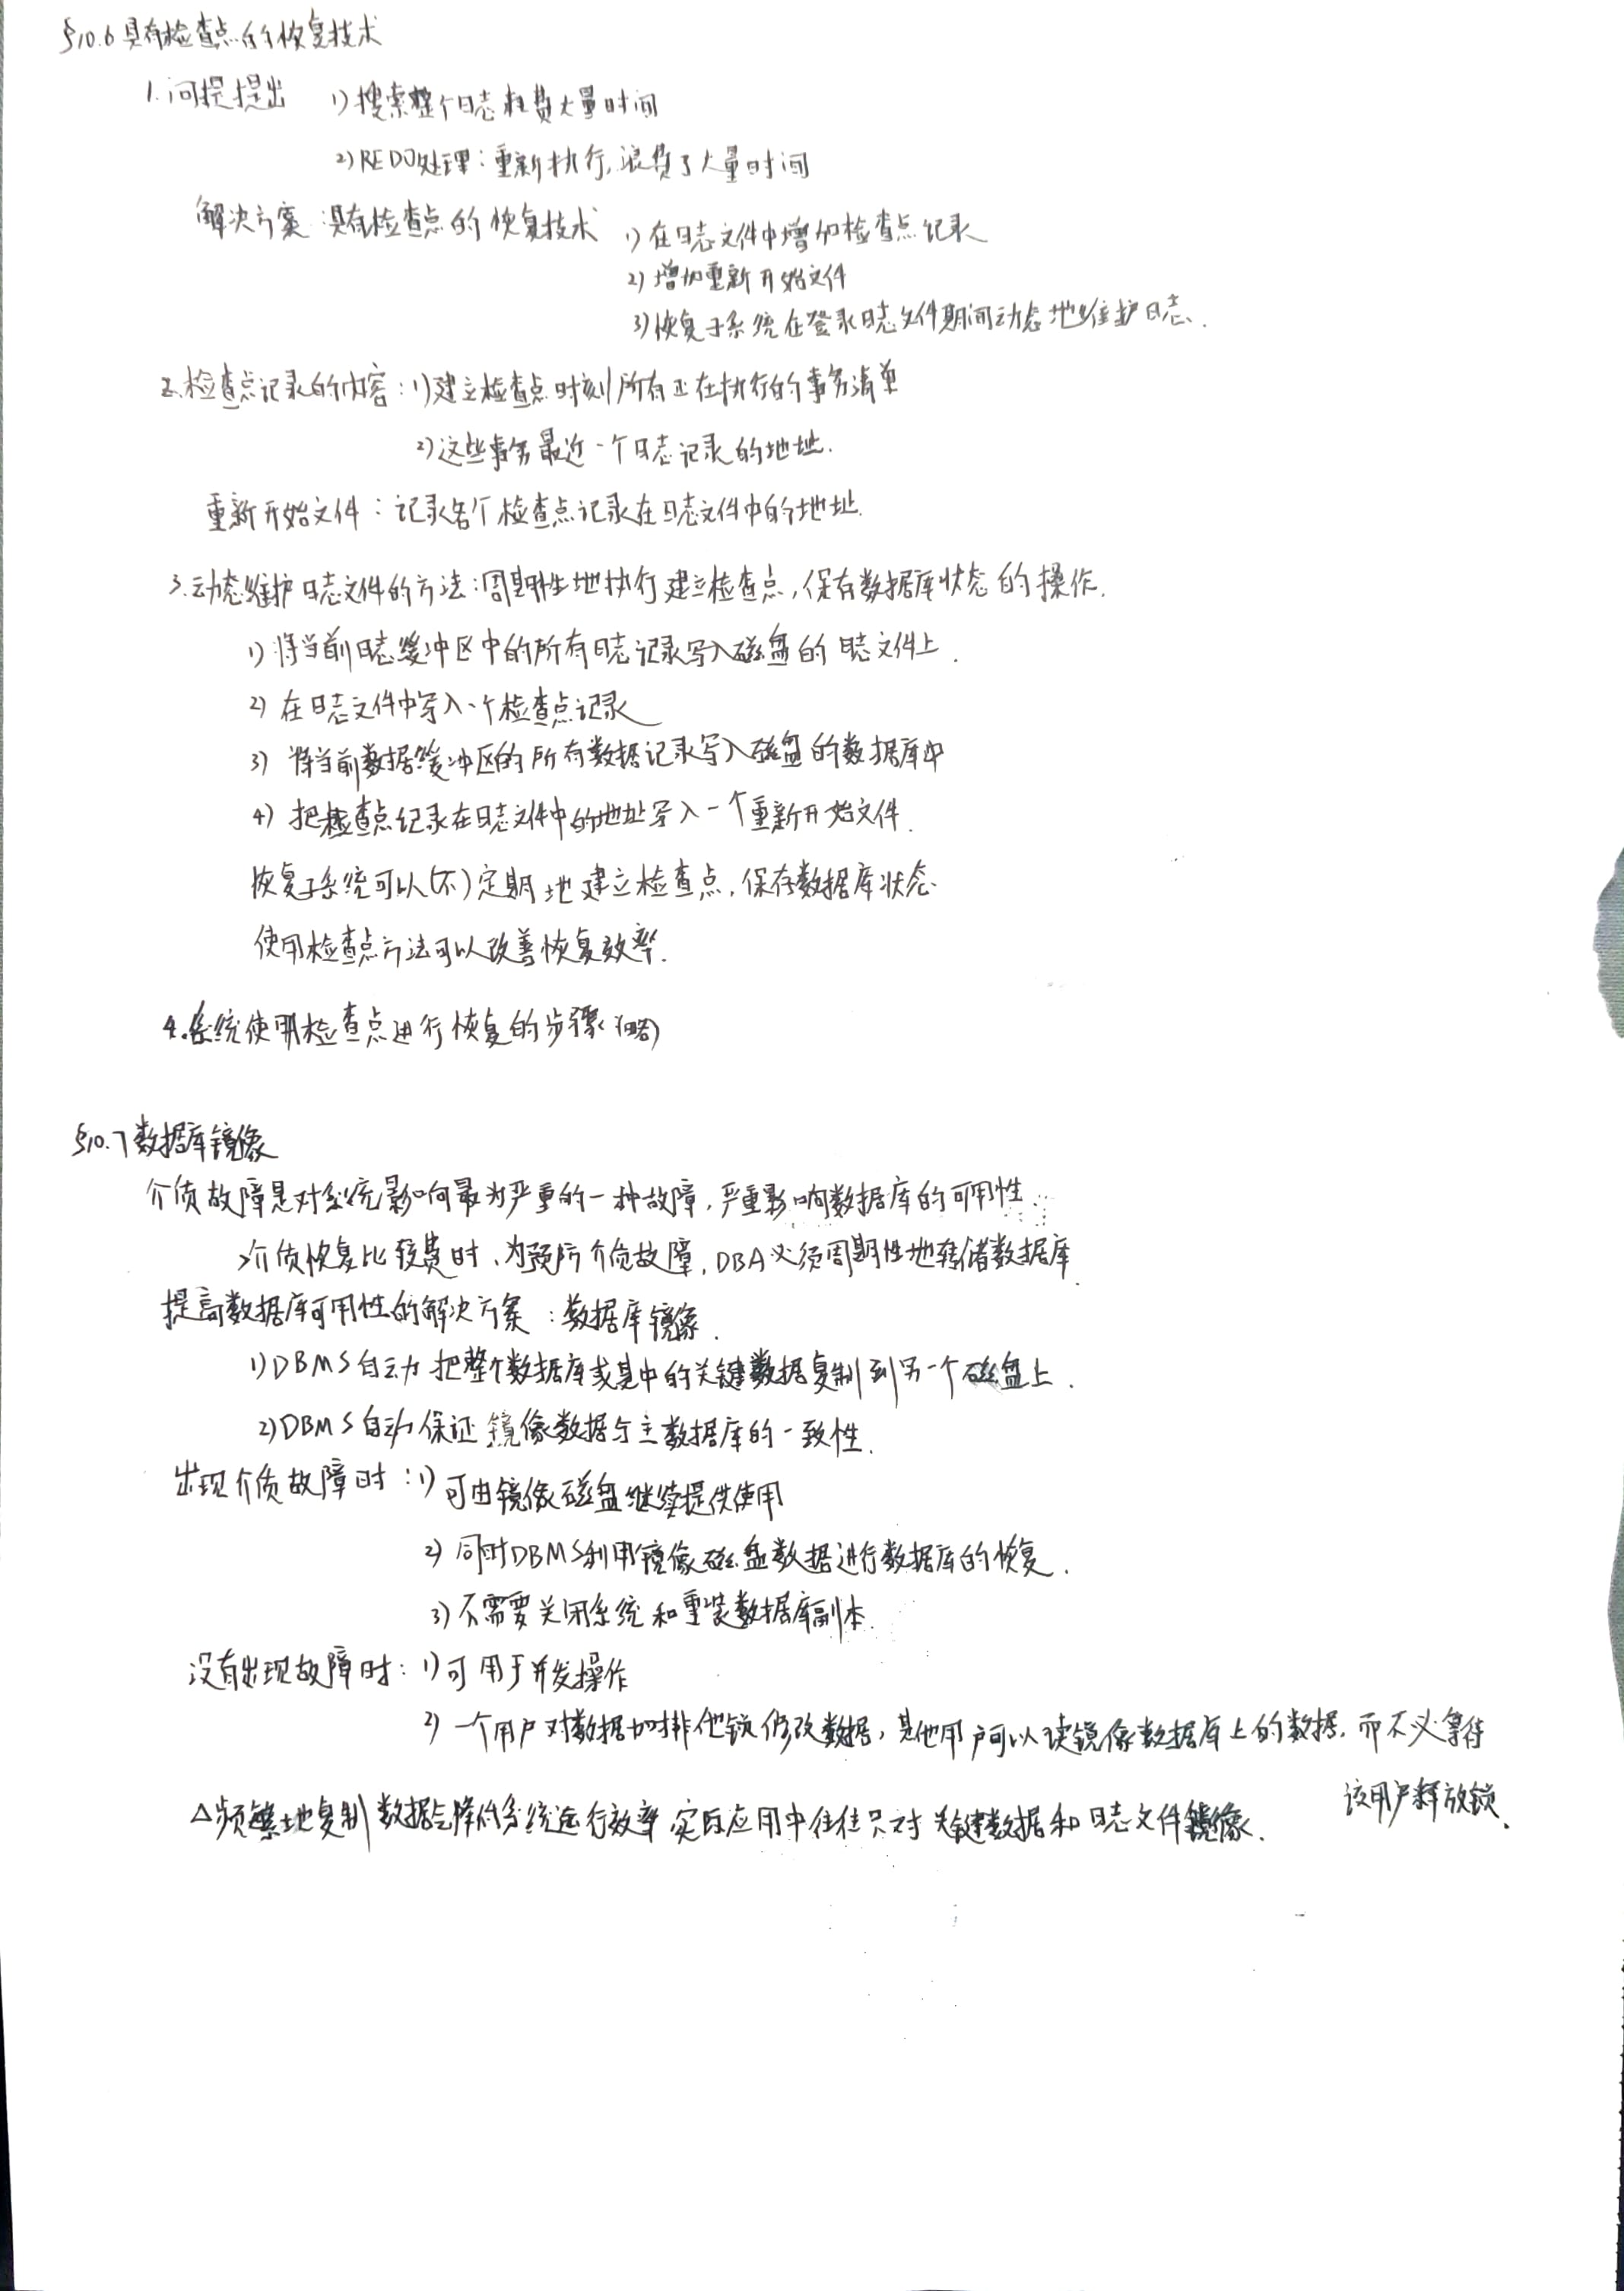 §10.6 具有检查点的恢复技术
1.问提提出 1)搜索整个日志耗费大量时间
2)REDO处理：重新执行,浪费了大量时间
解决方案：具有检查点的恢复技术 1)在日志文件中增加检查点记录
2)增加重新开始文件
3)恢复子系统在登录日志文件期间动态地维护日志.
2.检查点记录的内容：1)建立检查点时刻所有正在执行的事务清单
2)这些事务最近一个日志记录的地址.
重新开始文件：记录各个检查点记录在日志文件中的地址.
3.动态维护日志文件的方法：周期性地执行建立检查点,保存数据库状态的操作.
1)将当前日志缓冲区中的所有日志记录写入磁盘的日志文件上.
2)在日志文件中写入一个检查点记录
3)将当前数据缓冲区的所有数据记录写入磁盘的数据库中
4)把检查点记录在日志文件中的地址写入一个重新开始文件.
恢复子系统可以(不)定期地建立检查点,保存数据库状态.
使用检查点方法可以改善恢复效率.
4.系统使用检查点进行恢复的步骤(略)
§10.7数据库镜像
介质故障是对系统影响最为严重的一种故障,严重影响数据库的可用性.
介质恢复比较费时、为预防介质故障,DBA必须周期性地转储数据库.
提高数据库可用性的解决方案：数据库镜像.
1)DBMS自动把整个数据库或其中的关键数据复制到另一个磁盘上.
2)DBMS自动保证镜像数据与主数据库的一致性.
出现介质故障时：1)可由镜像磁盘继续提供使用
2)同时DBMS利用镜像磁盘数据进行数据库的恢复.
3)不需要关闭系统和重装数据库副本.
没有出现故障时：1)可用于并发操作
2)一个用户对数据加排他锁修改数据,其他用户可以读镜像数据库上的数据,而不必等待
该用户释放锁.
△频繁地复制数据会降低系统运行效率 实际应用中往往只对关键数据和日志文件镜像.